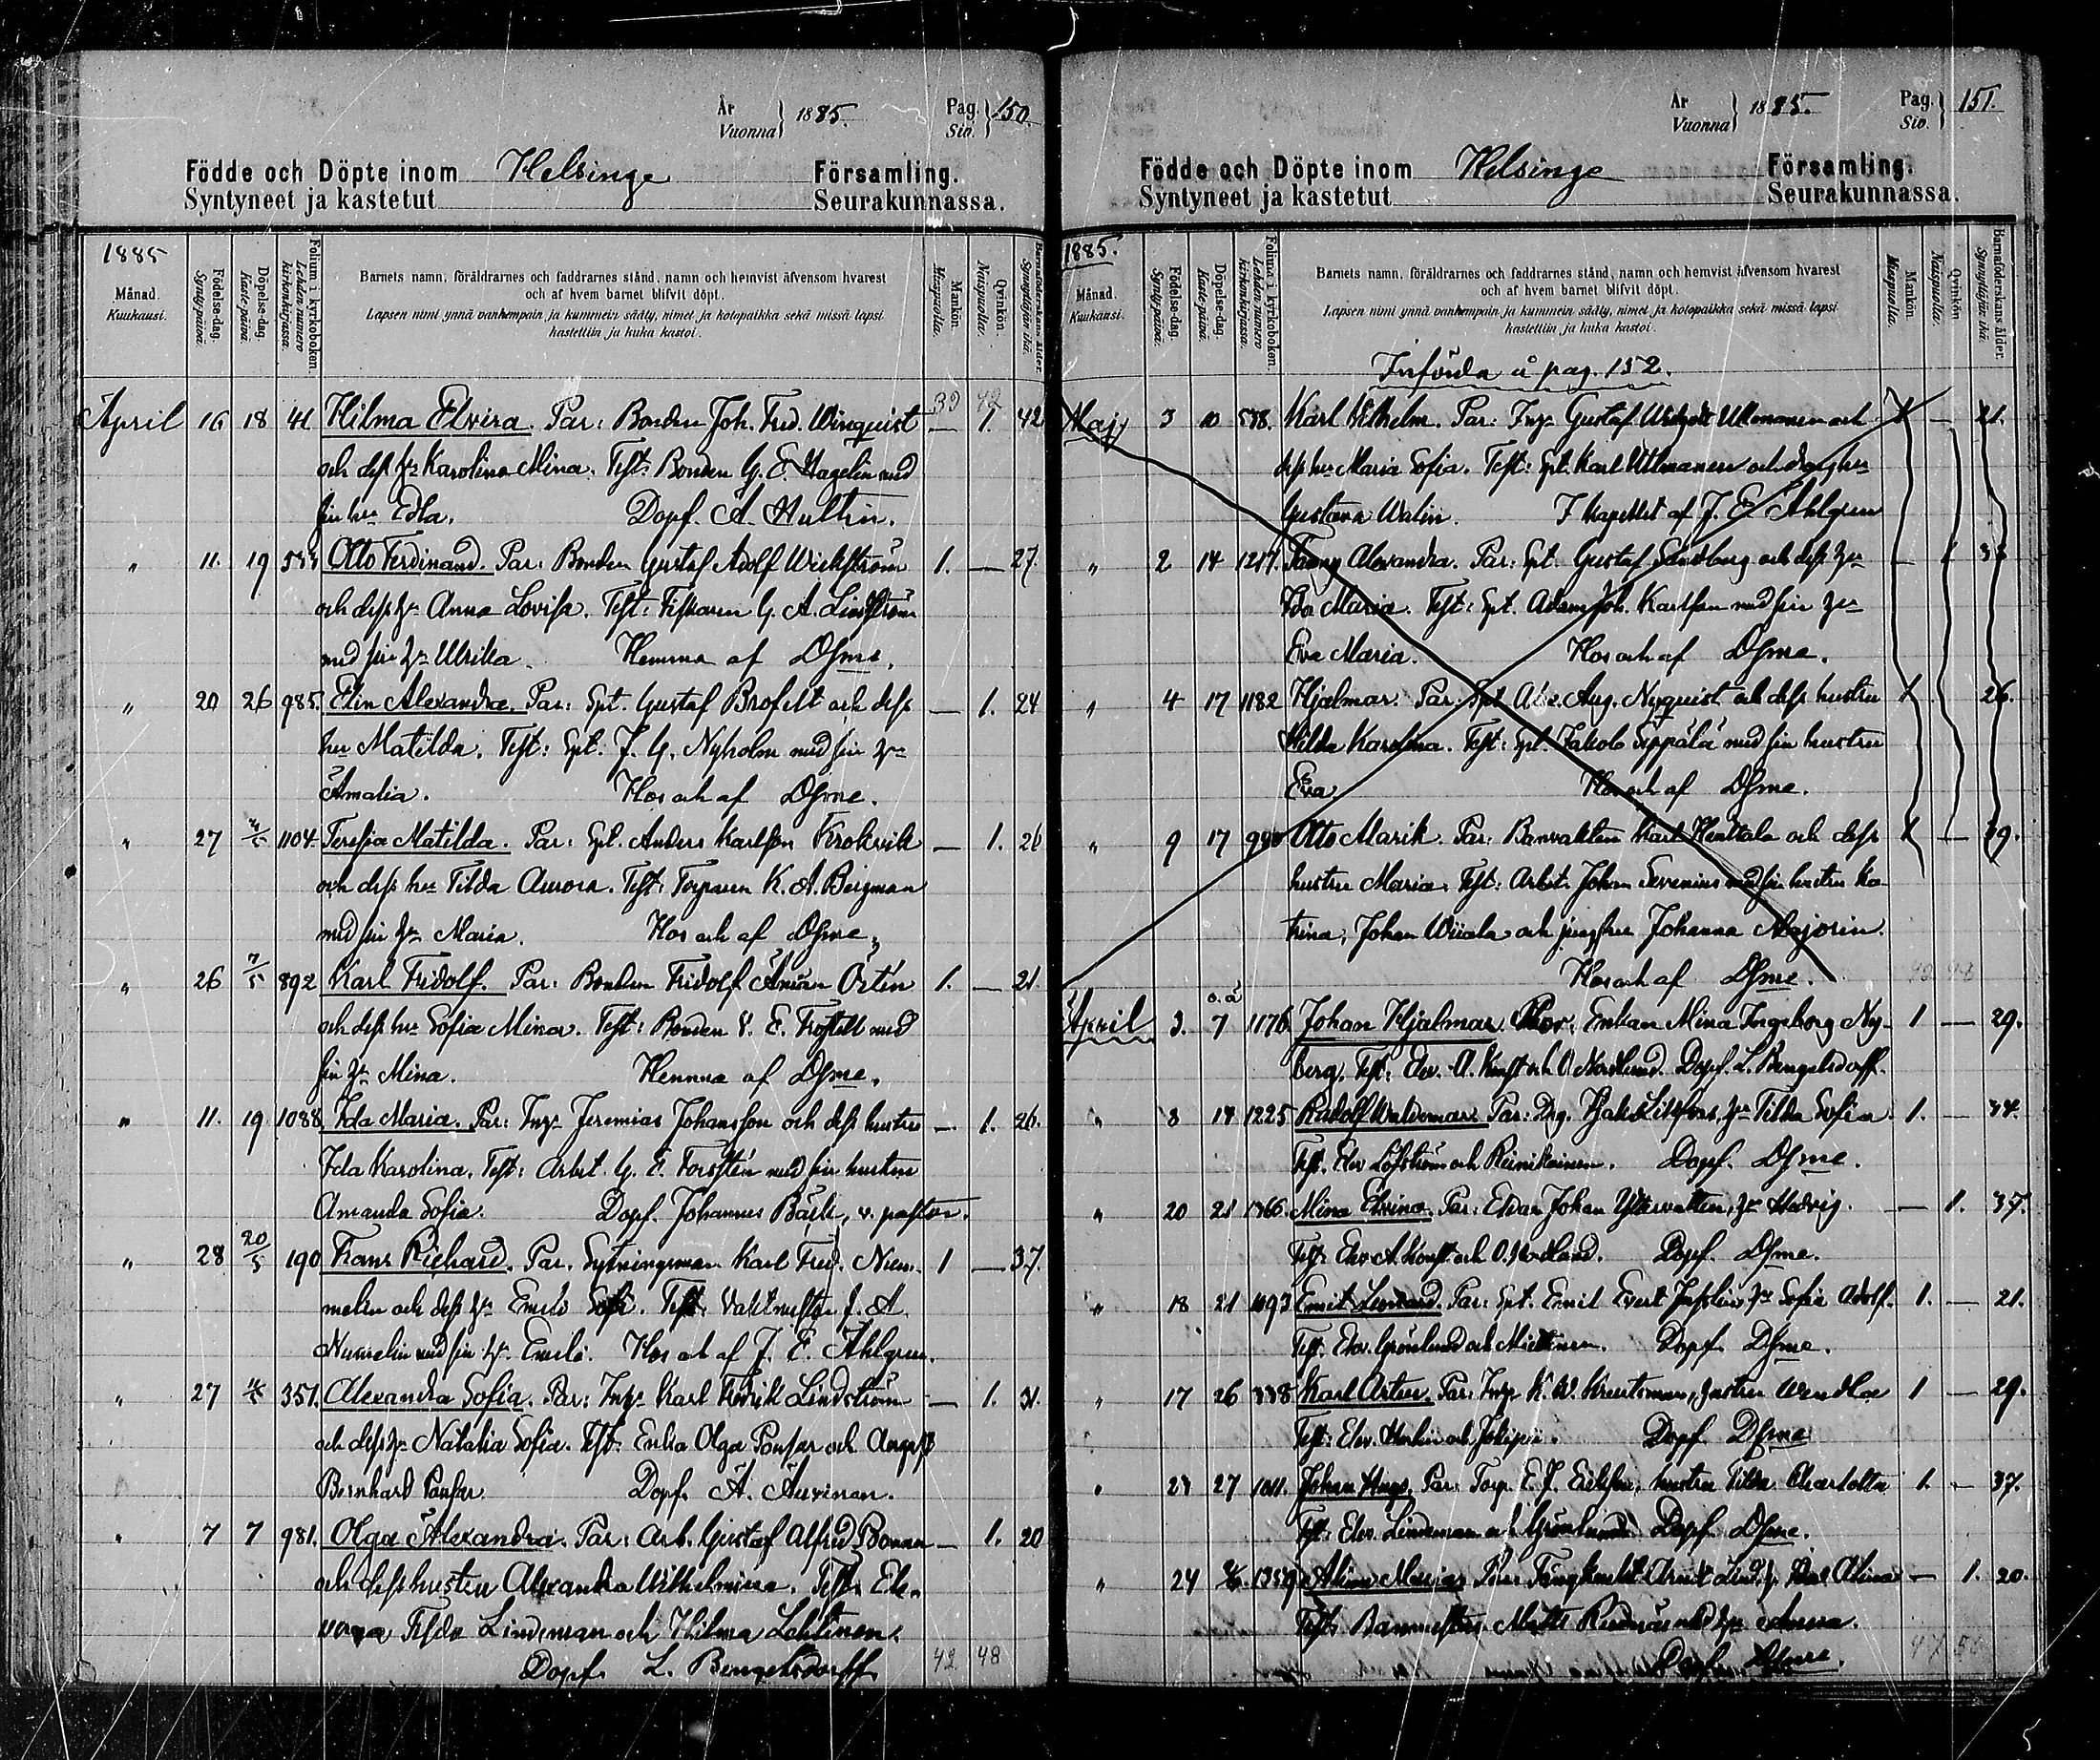 År
Vuonna } 1885. Pag.
Siv. } 150.
Födde och Döpte inom Helsinge Församling.
Syntyneet ja kastetut Seurakunnassa.
1885
Månad.
Kuukausi.
Födelse-dag.
Syntypäivä.
Döpelse-dag.
Kaste-päivä.
Folium i kyrkoboken.
Lehden numero kirkonkirjassa.
Barnets namn, föräldrarnes och faddrarnes stånd, namn och hemvist äfvensom hvarest
och af hvem barnet blifvit döpt.
Lapsen nimi ynnä vanhempain ja kummein sääty, nimet ja kotopaikka sekä missä lapsi
kastettiin ja kuka kastoi.
Mankön.
Miespuolia.
Qvinkön.
Naispuolia.
Barnaföderskans ålder.
Synnyttäjän ikä.
39 42
April 16 18 41 Hilma Elvira. Par: Bonden Joh. Fred. Winquist — 1. 42
och dess hr Karolina Mina. Test: Bonden G. E. Hagelin med
sin hru Edla. Dopf. A. Hultin.
" 11. 19 533 Otto Ferdinand. Par: Bonden Gustaf Adolf Wickström 1. — 27.
och dess hr Anna Lovisa. Test: Fiskaren G. A. Lindström
med sin hr Ulrika. Hemma af Dsme.
" 20 26 985. Elin Alexandra. Par: Spt. Gustaf Brofelt och dess — 1. 24
hru Matilda. Test: Spt. J. G. Nyholm med sin hr
Amalia. Hos och af Dsme.
" 27 1104 Teresia Matilda. Par: Spt. Anders Karlsson Krokvik — 1. 26
och dess hru Tilda Aurora. Test: Torparen K. A. Bergman
med sin hr Maria. Hos och af Dsme.
" 26 7/5 892 Karl Fridolf. Par: Bonden Fridolf Östén 1. — 21.
och dess hru Sofia Mina. Test: Bonden E. Frostell med
sin hr Mina. Hemma af Dsme.
" 11. 19 1088 Ida Maria. Par: Inh. Jeremias Johansson och dess hustru — 1. 26.
Ida Karolina. Test: Arbet. G. E. Forstén med sin hustru
Amanda Sofia. Dopf. Johannes Bäck, v. pastor.
" 28 20/5 190 Frans Richard. Par. Sytningsman Karl Fred. Num- 1 — 37.
melin och dess hr Emili Sofi. Test: Vaktmästen J. A.
Nummelin med sin hr Emili. Hos och af J. E. Ahlgren.
" 27 351. Alexandra Sofia. Par: Inh. Karl Fredrik Lindström — 1. 31.
och dess hr Natalia Sofia. Test: Enka Olga Ponsar och
Bernhard Ponsar. Dopf. A. Auvinen.
" 7 7 981. Olga Alexandra. Par: Arb. Gustaf Alfred Boman — 1. 20
och dess hustru Alexandra Wilhelmina. Test: Ele-
verna Tilda Lindeman och Hilma Lehtinen.
Dopf. L. Bengelsdorff 42 48
År
Vuonna } 1885. Pag.
Siv. } 151.
Födde och Döpte inom Helsinge Församling.
Syntyneet ja kastetut Seurakunnassa.
1885.
Månad.
Kuukausi.
Födelse-dag.
Syntypäivä.
Döpelse-dag.
Kaste-päivä.
Folium i kyrkoboken.
Lehden numero kirkonkirjassa.
Barnets namn, föräldrarnes och faddrarnes stånd, namn och hemvist äfvensom hvarest
och af hvem barnet blifvit döpt.
Lapsen nimi ynnä vanhempain ja kummein sääty, nimet ja kotopaikka sekä missä lapsi
kastettiin ja kuka kastoi.
Mankön.
Miespuolia.
Qvinkön.
Naispuolia.
Barnaföderskans ålder.
Synnyttäjän ikä.
Införda å pag. 152.
Maj 3 10 588. Karl Vilhelm. Par: Inh. Gustaf Ullmanen och 1 — 21.
dess hru Maria Sofia. Test: Spt. Karl Ullmanen och
Gustava Walin. I Kapellet af J. E. Ahlgren
" 2 14 1217. Fanny Alexandra. Par: Spt. Gustaf Sandberg och dess hr — 1
Ida Maria. Test: Spt. Adam Joh. Karlsson med sin hr
Eva Maria. Hos och af Dsme.
" 4 17 1182 Hjalmar. Par: Spt Alex. Aug. Nyquist och dess hustru 1 26.
Hilda Karolina. Test: Spt. Jakob Seppälä med sin hustru
Eva Hos och af Dsme.
" 9 17 Otto Marik. Par: Banvakten Karl Henttala och dess 1 — 39.
hustru Maria. Test: Arbet. Johan Severinus med sin hustru Ka-
trina, Johan Wiiala och jungfru Johanna Majorin.
Hos och af Dsme. 42 48
April 3. 7 1176 Johan Hjalmar. Mor: Enkan Mina Ingeborg Ny- 1 — 29.
berg. Test: Elev. A. och O Nordlund. Dopf. L. Bengelsdorff.
" 8 14 1225 Rudolf Waldemar. Par: Drg. Litsfors, hr Tilda Sofia 1. — 34.
Test. Elev Löfström och Reinikainen. Dopf. Dsme.
" 20 21 1366. Mina Elvina. Par: Johan Yttervatten, hr Hedvig. — 1. 37.
Test: Elev A. och O. Nordlund. Dopf. Dsme.
" 18 21 1093 Emil Leonard. Par: Spt. Emil Evert hr Sofia Adolf. 1. — 21.
Test. Elev. Grönlund och Miettinen. Dopf. Dsme.
" 17 26 338 Karl Artur. Par: Inh K. W. Kreutsman, hustru Wendla 1 — 29.
Test: Elev. och Dopf. Dsme
" 23 27 1011. Johan Hugo. Par: Torp. E. J. Eriksson, hustru Tilda Charlotta 1. — 37.
Test: Elev. Lindeman och Grönlund. Dopf. Dsme.
" 24 1359 Alina Maria. Par: Arvid Lind, hr Ida Alina — 1. 20.
Test: Banmästar. Matts med hr Anna.
Dopf. Dsme.